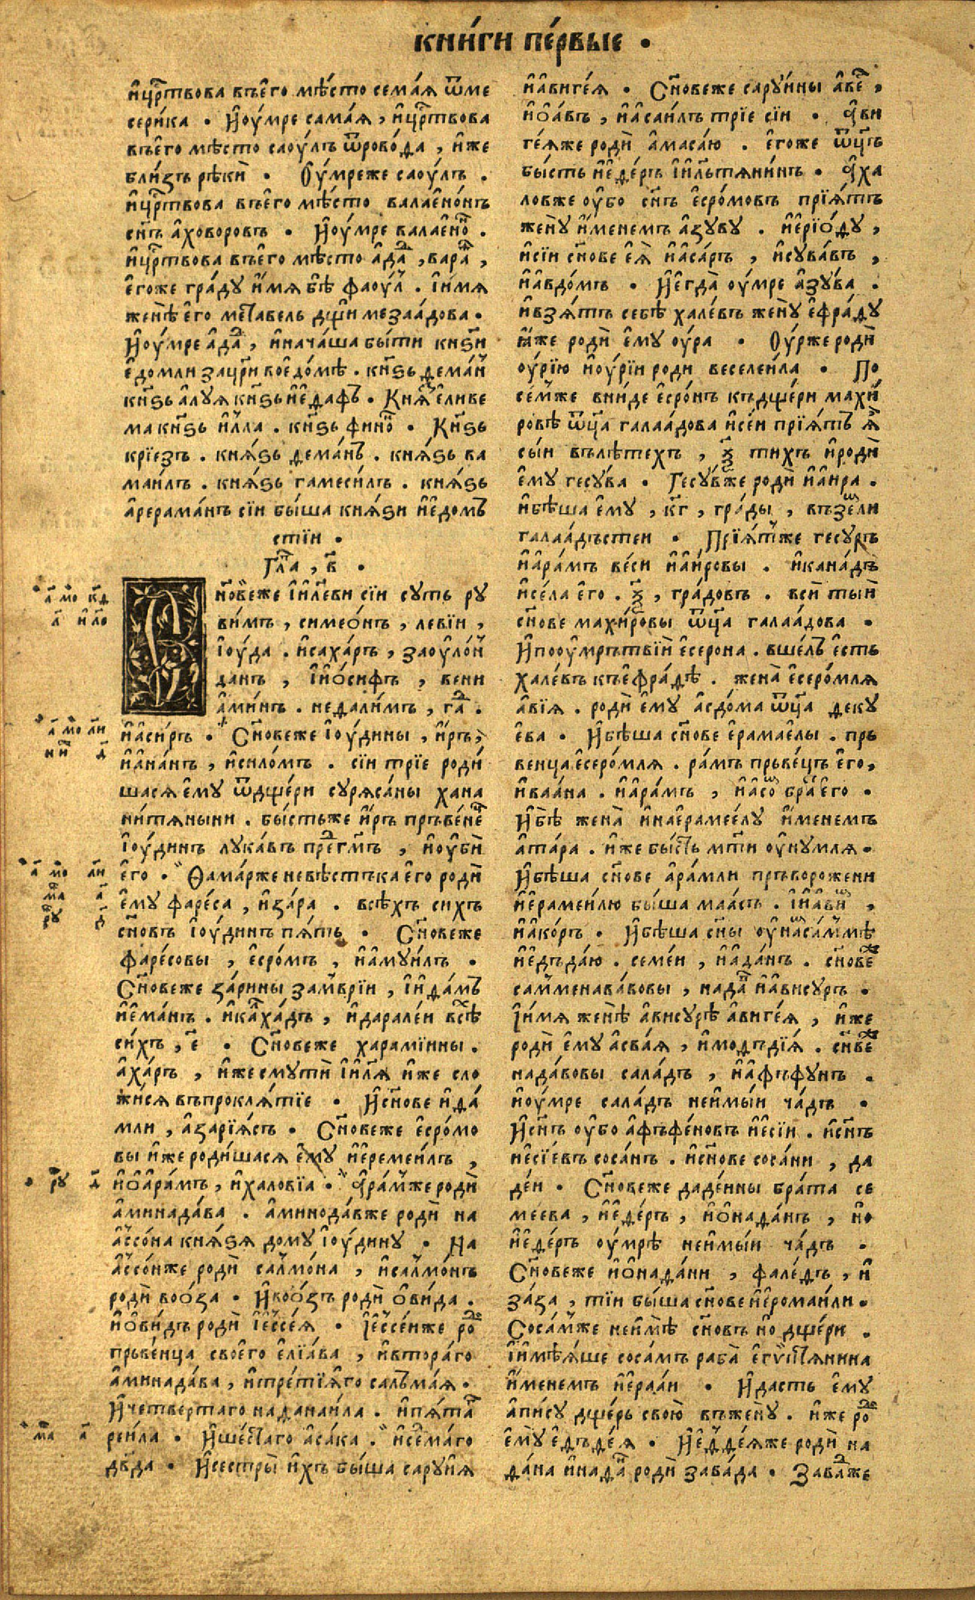 кни́ги пе́рвыє .
и҆цр҃твова въє҆го мѣ́сто семаꙗ ѿме
сери́ка . И҆оу́мре сама́ꙗ , и҆цр҃твова
въє҆го мѣ́сто саоу́лъ ѿрово́ѳа , и҆же
бли́зъ рѣки̇̀ . Оу҆́мреже саоу́лъ .
и҆цр҃твова въє҆го мѣ́сто валаєно́нъ
сн҃ъ а҆ховоровъ . И҆оу́мре валаєно́н .
и҆цр҃твова въє҆го мѣ́сто а҆да́д , вара́д ,
є҆гоже гра́ду и҆́мѧ бѣ̀ фаоу́л . І҆и́мѧ
женѣ̀ є҆го метавель дщи мезаа́дова .
И҆оу́мре а҆да́д , и҆нача́ша бы́ти кн҃ѕи
є҆домли зацр҃и воє҆до́мѣ . кн҃ѕь дема́н
кн҃ѕь а҆луꙗ кн҃ѕь и҆є҆даѳъ . Кнѧѕ є҆ливе
ма кн҃ѕь и҆лла . кн҃ѕь фино́н . Кн҃ѕь
крі́езъ . кнѧ́ѕь дема́нъ . кнѧ́ѕь ва
маи́лъ . кнѧ́ѕь гамеси́лъ . кнѧ́ѕь
а҆рерама́нъ сі́и бы́ша кнѧ́ѕи и҆є҆домъ
сті́и .
Гла҃ , в҃ .
Сн҃овеже і҆и҃леви сі́и суть ру
ви́мъ , симео́нъ , леві́и ,
і҆ю́да . и҆саха́ръ , заоуло́н
да́нъ , і҆и҆о́сифъ , вени
а҆ми́нъ . недали́мъ , га́д .
и҆аси́ръ . Сн҃овеже і҆ю́дины , и҆́ръ ,
и҆а҆на́нъ , и҆сило́мъ . сі́и трі́е роди́
шасѧ є҆му ѿдще́ри сурѧса́ны хана
ни́тѧныни . бы́стьже и҆́ръ пръвене́ц
і҆ю́динъ лука́въ прег҃мъ , и҆оуби̇̀
є҆го . Ѳама́рже невѣ́стъка є҆го роди̇̀
є҆му фаре́са , и҆за́ра . всѣ́хъ си́хъ
сн҃овъ і҆ю́динъ пѧ́ть . Сн҃овеже
фаре́совы , є҆сро́мъ , и҆амуи́лъ .
Сн҃овеже за́рины замврі́и , і҆и҆да́мъ
и҆е҆ма́нъ . и҆кахадъ , и҆дарале́и всѣ
си́хъ , є҃ . Сн҃овеже харамі́ины .
а҆ха́ръ , и҆же смути̇̀ і҆и҃лѧ и҆же сло
жи́сѧ въпроклѧ́тіе . И҆сн҃ове и҆да́
мли , а҆зарі́ѧсъ . Сн҃овеже є҆сро́мо
вы и҆же роди́шасѧ є҆му и҆еремеи́лъ ,
и҆о҆а҆ра́мъ , и҆халовіа . А҆ра́мже роди̇̀
а҆минада́ва . а҆минода́вже роди̇̀ на
а҆ссо́на кнѧ́ѕѧ до́му і҆ю́дину . На
а҆ссо́нже роди̇̀ салмо́на , и҆салмо́нъ
роди̇̀ воо́за . И҆воо́зъ роди̇̀ о҆ви́да .
и҆о҆ви́дъ роди̇̀ і҆ессе́ѧ . І҆ессе́иже ро
пръвенца своего є҆лиа́ва , и҆втора́го
а҆минада́ва , и҆трétіѧго салъма́ꙗ .
И҆четвертаго наданаи́ла . и҆пѧ́таг
реи́ла . И҆ше́стаго а҆са́ка . и҆се́маго
дв҃да . И҆сестры̀ и҆́хъ бы́ша саруи́ѧ
и҆а҆виге́ѧ . Сн҃овеже саруи́ны а҆ве́с ,
и҆о҆а́въ , и҆а҆саи́лъ трі́е сі́и . А҆ви
ге́ѧже роди̇̀ а҆маса́ю . є҆гоже ѿц҃ъ
бы́сть и҆е҆де́ръ і҆и҆льтѧни́нъ . А҆ха
ловже оу҆бо сн҃ъ є҆сро́мовъ прїѧ́тъ
жену̀ и҆менемъ а҆зуву . и҆е҆рі́оду ,
и҆сі́и сн҃ове є҆ѧ̀ и҆а҆са́ръ , и҆сува́въ ,
и҆а҆вдо́мъ . И҆є҆гда̀ оу҆мре а҆зу́ва .
и҆взѧ́тъ себѣ̀ хале́въ жену̀ є҆фра́ду
ꙗ҆́же роди̇̀ є҆му оу́ра . Оу҆́рже роди̇̀
оу҆рі́ю и҆оурі́и роди веселеи́ла . По
се́мже вни́де є҆сро́нъ къдще́ри махи́
ровѣ ѿц҃а галаа́дова и҆се́и прїѧ́тъ ѧ
сы́и въ лѣ́техъ , ѯ҃ тихъ и҆роди̇̀
є҆му гесу́ва . Гесу́вже роди̇̀ и҆аи́ра .
и҆бѣ́ша є҆му , кг҃ , гра́ды , въземли
галаа́дъстеи . Прїѧ́тже гесу́ръ
и҆а҆ра́мъ ве́си и҆аи́ровы . и҆кана́дъ
и҆се́ла є҆го . ѯ҃ , гра́довъ . всѝ ты́и
сн҃ове махи́ровы ѿц҃а галаа́дова .
И҆пооумръ́твіи є҆серона . вше́лъ є҆сть
хале́въ къє҆фра́дѣ . жена̀ є҆серо́млѧ
а҆ві́ѧ . роди̇̀ є҆му а҆сдома ѿц҃а деку
є҆ва . И҆бѣ́ша сн҃ове є҆рамае́лы . прь
венца є҆серо́млѧ . ра́мъ прьве́цъ є҆го ,
и҆ваа́на . и҆а҆ра́мъ , и҆а҆со́м бра́т є҆го .
И҆бѣ̀ жена̀ и҆на є҆рамее́лу и҆́менемъ
а҆та́ра . и҆же бы́сть мт҃и оу҆ну́млѧ .
И҆бѣ́ша сн҃ове а҆ра́мли пръворожени
и҆ерамеи́лю бы́ша маа́съ . і҆и҆а҆ви́н ,
и҆а҆ко́ръ . И҆бѣ́ша сн҃ы оу҆насаммѣ
и҆е҆дъда́ю . семе́и , и҆а҆да́нъ . сн҃овеж
самменава́вовы , нада́в и҆а҆вису́ръ .
І҆и́мѧ женѣ̀ а҆вису́рѣ а҆виге́ѧ , и҆же
роди̇̀ є҆му а҆сва́ꙗ , и҆модъді́ѧ . сн҃веж
нада́вовы сала́дъ , и҆а҆фъфу́нъ .
и҆оу́мре сала́дъ неи҆мы́и ча́дъ .
И҆сн҃ъ оу҆бо а҆фъфе́новъ и҆е҆сі́и . и҆сн҃ъ
и҆е҆сі́евъ соса́нъ . и҆сн҃ове соса́ни , да
де́и . Сн҃овеже даде́ины бра́та се
меева , и҆е҆де́ръ , и҆о҆нада́нъ , и҆о
и҆е҆де́ръ оу҆мрѣ неи҆мы́и ча́дъ .
Сн҃овеже и҆о҆нада́ни , фале́дъ , и҆
за́за , ті́и бы́ша сн҃ове и҆е҆романли .
Соса́мже неи҆мѣ̀ сн҃овъ но дще́ри .
І҆и҆мѣ́ѧше соса́мъ раба̀ є҆гѵ́птѧнина
и҆́менемъ и҆е҆раа́и . И҆да́сть є҆му
а҆пи́су дще́рь свою̀ въжену̀ . и҆же ро
є҆му̀ є҆дъде́ѧ . И҆е҆дде́ѧже роди̇̀ на
да́на и҆нада́н роди̇̀ зава́да . Зава́дже